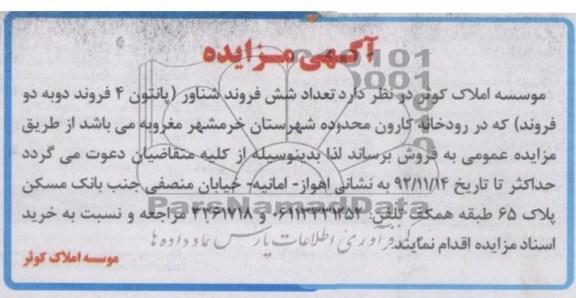 آگهی مزایده
موسسه املاک کوثر در نظر دارد تعداد شش فروند شناور (پانتون ۴ فروند دوبه دو
فروند) که در رودخانه کارون محدوده شهرستان خرمشهر مغروبه می باشد از طریق
مزایده عمومی به فروش برساند لذا بدینوسیله از کلیه متقاضیان دعوت می گردد
حداکثر تا تاریخ ۹۲/۱۱/۱۴ به نشانی اهواز- امانیه- خیابان منصفی جنب بانک مسکن
پلاک ۶۵ طبقه همکف تلفن: ۰۶۱۱۳۳۳۱۲۵۴ و ۳۳۶۱۷۱۸ مراجعه و نسبت به خرید
اسناد مزایده اقدام نمایند.
موسسه املاک کوثر
ParsNamadData
فرآوری اطلاعات پارس نماد داده ها